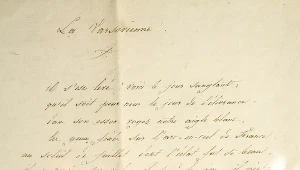 La Varsovienne.
il s'est levé, voici le jour sanglant,
qu'il soit pour nous le jour de délivrance
dans son essor voyez notre aigle blanc
les yeux fixés sur l'arc-en-ciel de France
au soleil de juillet dont l'éclat fut si beau
il